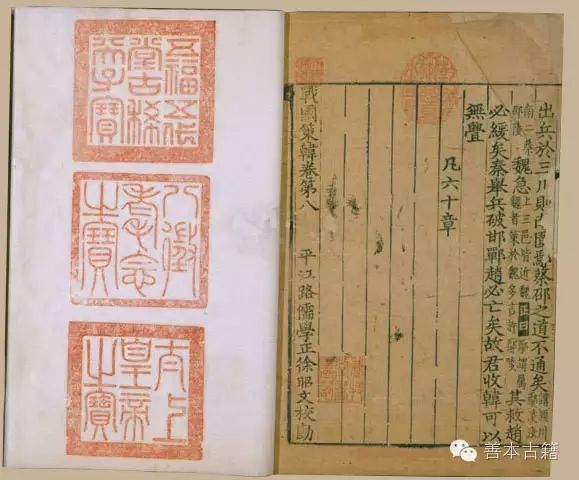 出兵於三川則南圍鄢蔡邵之道不通矣
魏急上三邑皆近魏正曰其救趙
必緩矣秦舉兵破邯鄲趙必亡矣故君收韓可以
無舋
凡六十章
戰國策韓卷第八
平江路儒學正徐昭文校勘
五福五代
堂古稀
天子寶
八徵
耄念
之寶
太上
皇帝
之寶
善本古籍